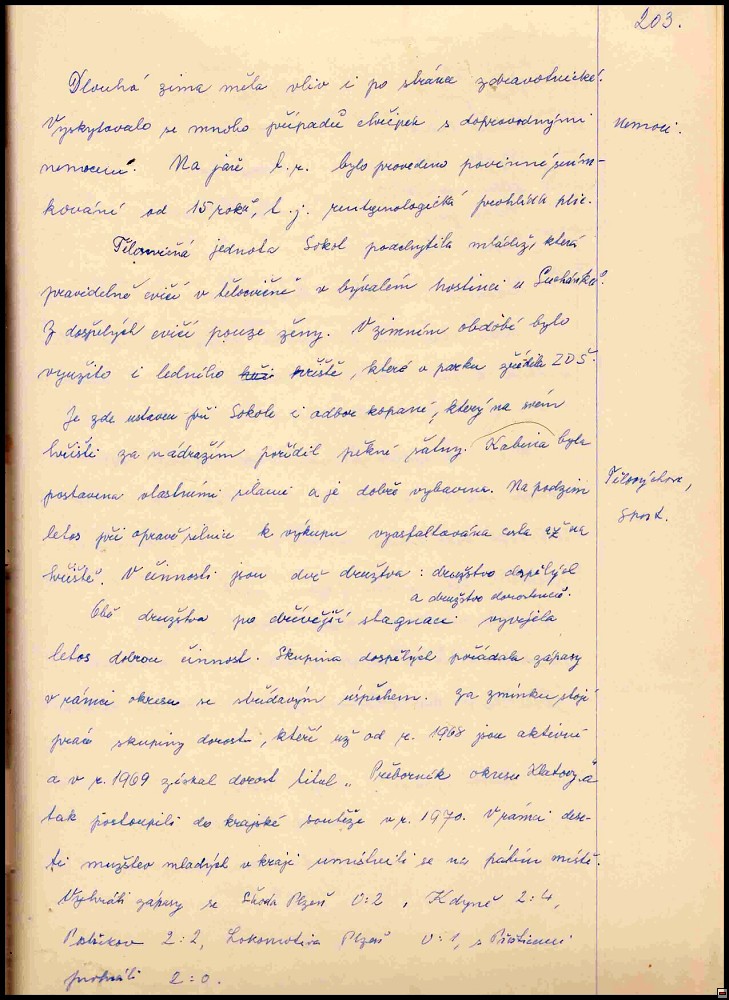 203.
Dlouhá zima měla vliv i po stránce zdravotnické.
Vyskytovalo se mnoho případů chřipek s doprovodnými
Nemoci.
nemocemi. Na jaře t.r. bylo provedeno povinné sním-
kování od 15 roků, t.j. rentgenologická prohlídka plic.
Tělocvičná jednota Sokol podchytila mládež, která
pravidelně cvičí v tělocvičně v bývalém hostinci u Suchánků.
Z dospělých cvičí pouze ženy. V zimním období bylo
využito i ledního hřiště, které v parku zřídila ZDŠ.
Je zde ustaven při Sokole i odbor kopané, který na svém
hřišti za nádražím pořídil pěkné šatny. Kabina byla
Tělovýchova,
postavena vlastními silami a je dobře vybavena. Na podzim
sport.
letos při opravě silnice k výkupu vyasfaltována cesta až na
hřiště. V činnosti jsou dvě družstva: družstvo dospělých
a družstvo dorostenců.
Obě družstva po dřívější stagnaci vyvíjela
letos dobrou činnost. Skupina dospělých pořádala zápasy
v rámci okresu se střídavým úspěchem. Za zmínku stojí
práce skupiny dorostu, kteří už od r. 1968 jsou aktivní
a v r. 1969 získal dorost titul „Přeborník okresu Klatovy" a
tak postoupili do krajské soutěže v r. 1970. V rámci dese-
ti mužstev mladých v kraji umístnili se na pátém místě.
Vyhráli zápasy se Škoda Plzeň 0:2, Kdyně 2:4,
2:2, Lokomotiva Plzeň 0:1, s
prohráli 2:0.